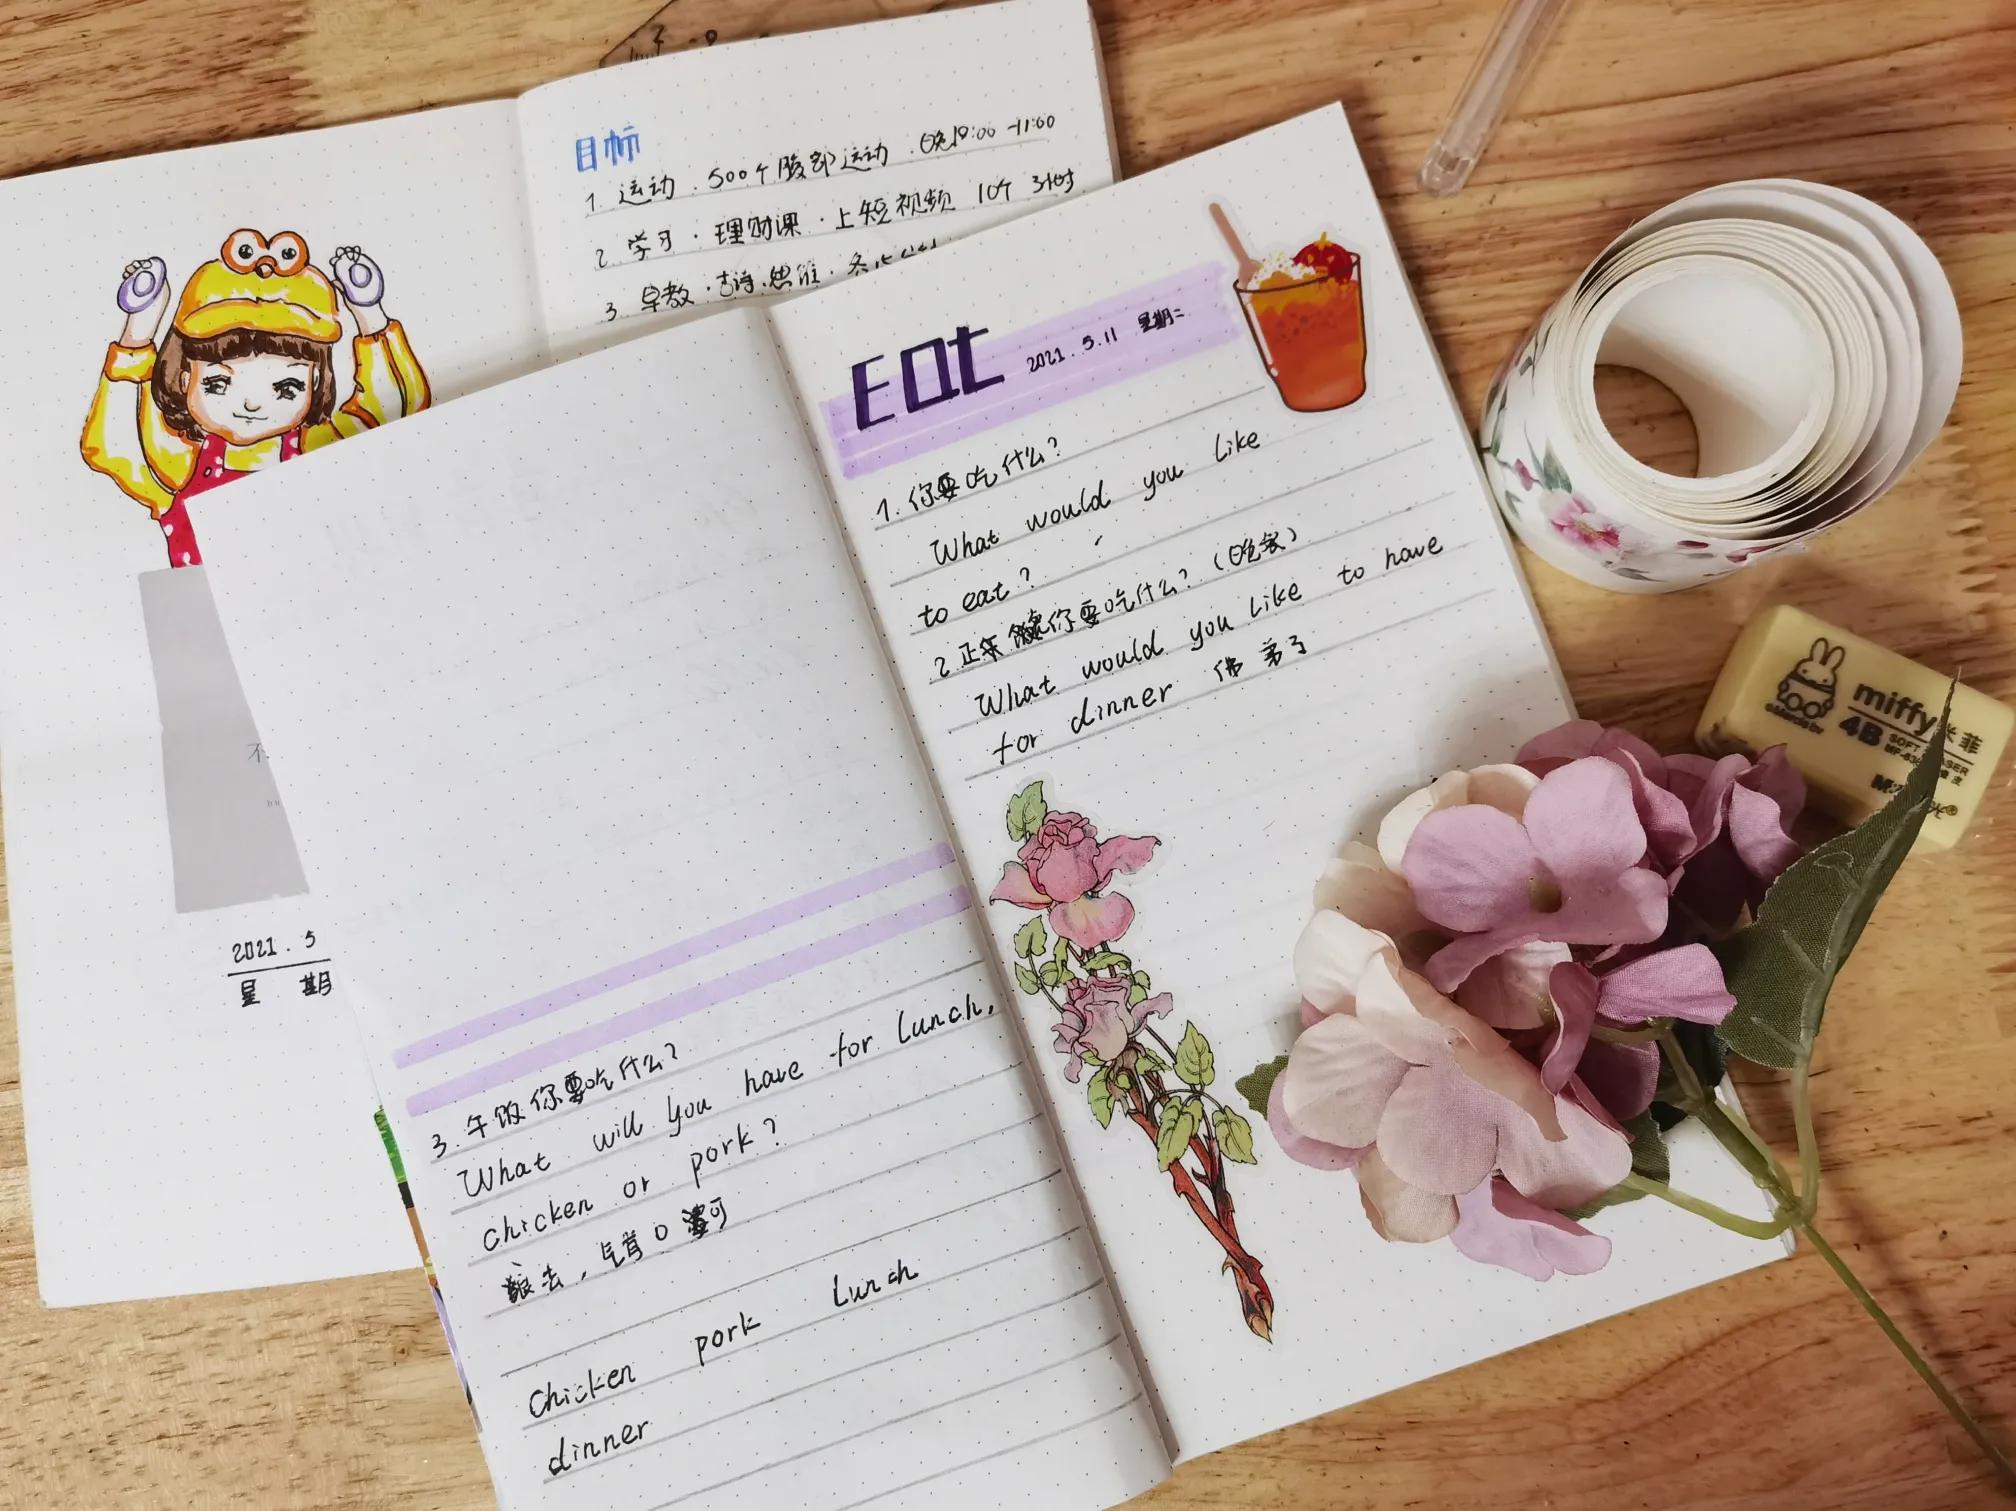 目标
1. 运动 . 500个腹部运动 . 晚10:00-11:00
2. 学习 . 理财课 . 上短视频 10个 3小时
3. 早教 . 古诗 . 思维 .
2021 . 5
星 期
Eat 2021 . 5.11 星期二
1. 你要吃什么?
What would you like
to eat?
2. 正餐 你要吃什么? (晚餐)
What would you like to have
for dinner 佛 弟子
3. 午饭你要吃什么?
What will you have for lunch,
chicken or pork?
Chicken pork lunch
dinner
miffy 米菲
4B SOFT